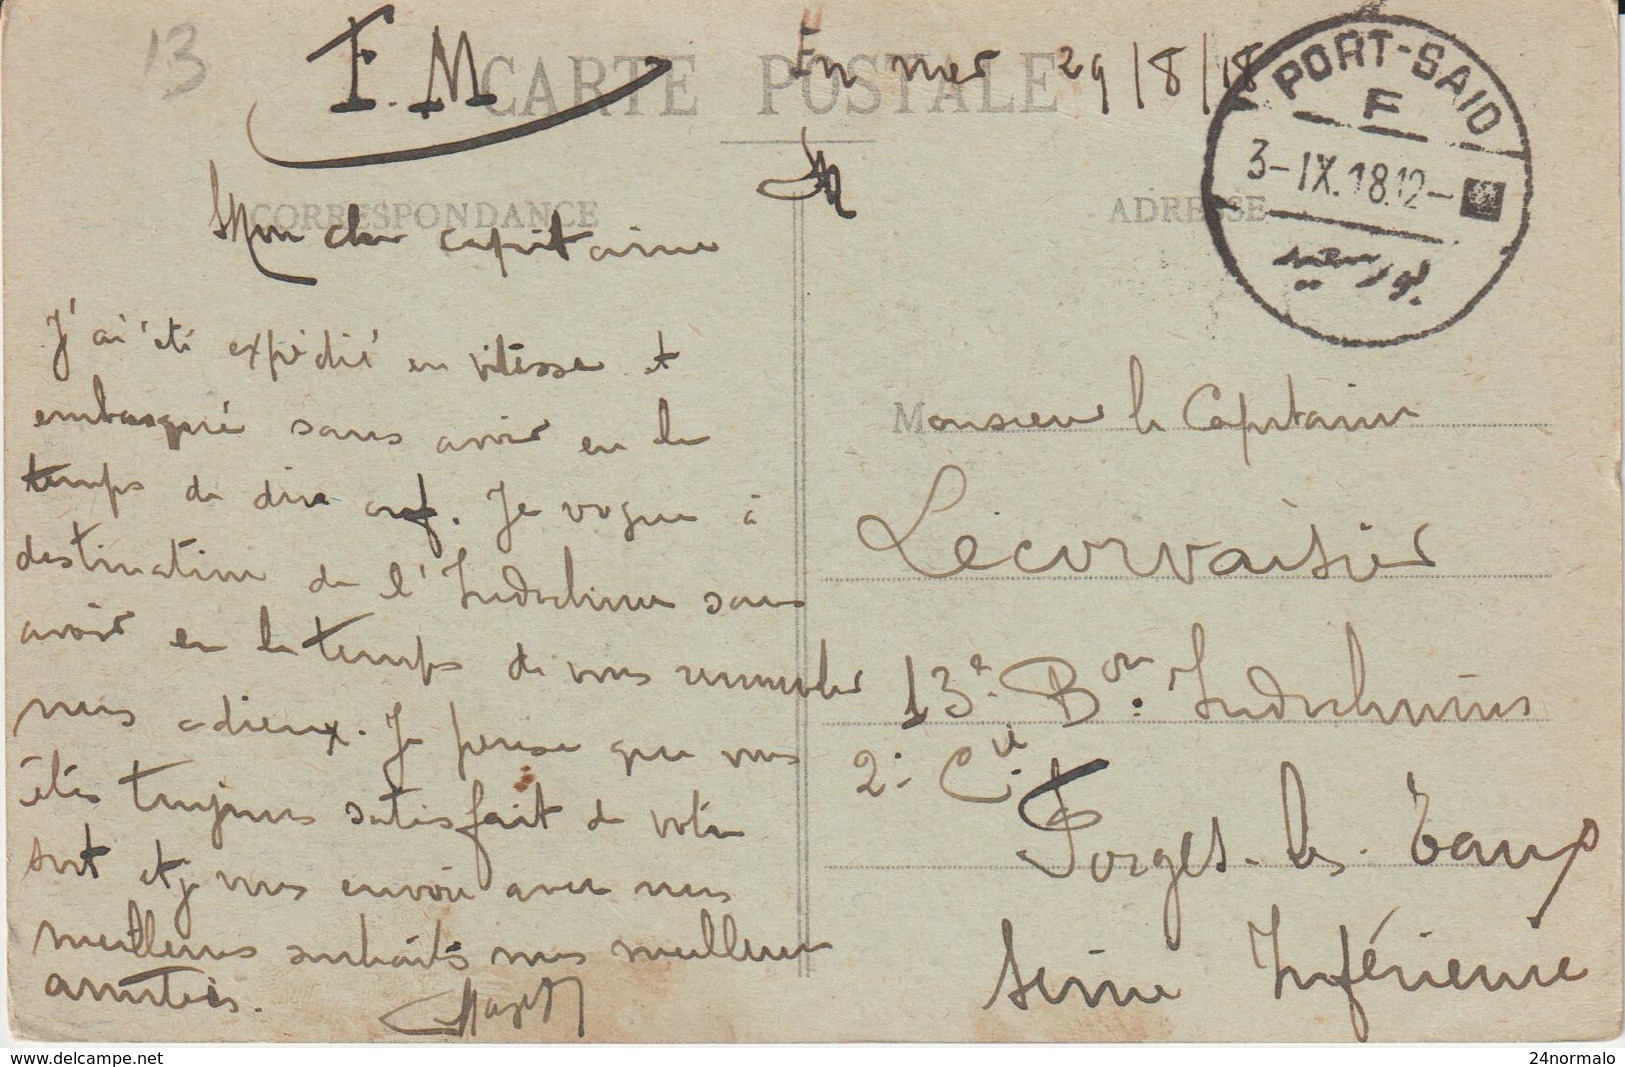 13
F.M
CARTE POSTALE
En mer 29/8/18
PORT-SAID
F
3-IX.18.12-
CORRESPONDANCE
ADRESSE
Mon cher capitaine
J'ai été expédié en vitesse et
embarqué sans avoir eu le
temps de dire ouf. Je vogue à
destination de l'Indochine sans
avoir eu le temps de vous renouveler
mes adieux. Je pense que vous
êtes toujours satisfait de votre
sort et je vous envoie avec mes
meilleurs souhaits mes meilleures
amitiés.
Monsieur le Capitaine
Lecorvaisier
13e Bon Indochinois
2e Cie
Forges-les-Eaux
Seine Inférieure
www.delcampe.net
24normalo